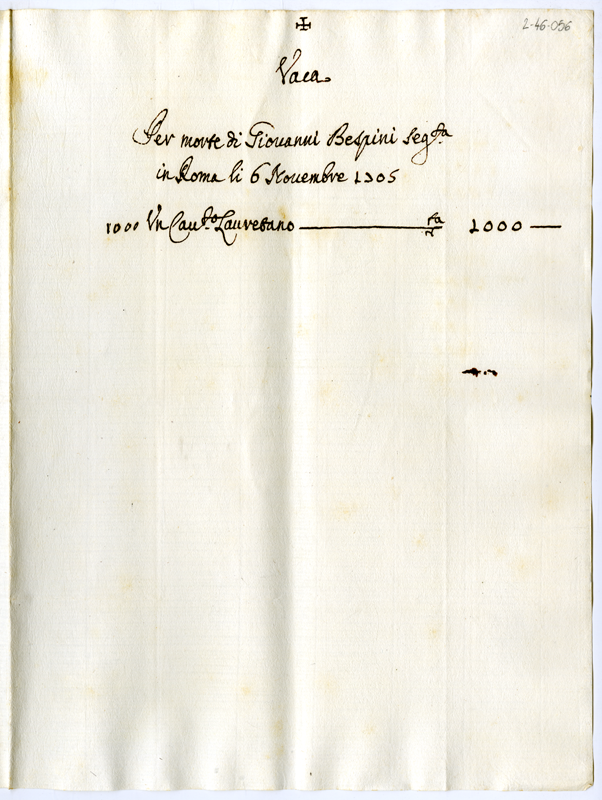 2-46-056
✠
Vaca.
Per morte di Giovanni Bespini seg.ta
in Roma li 6 Novembre 1705
1000 Un Cav.to Lauretano 1000